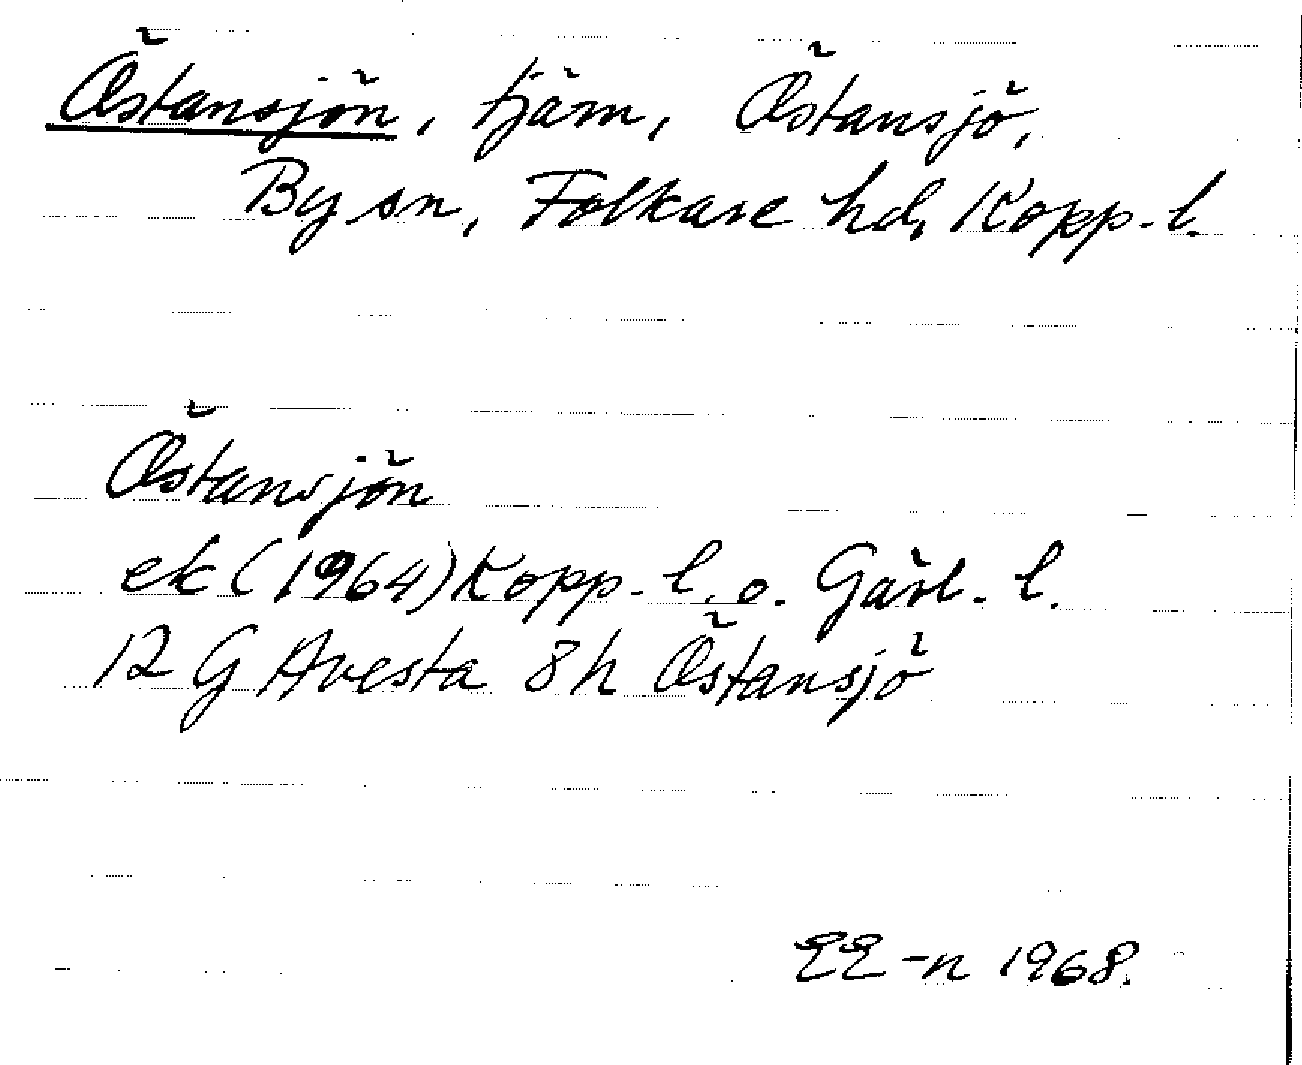 Östansjön, tjärn, Östansjö,
By sn, Folkare hd, Kopp.l.
Östansjön
ek (1964) Kopp.l. o. Gävl.l.
12 G Avesta 8h Östansjö
EE-n 1968.